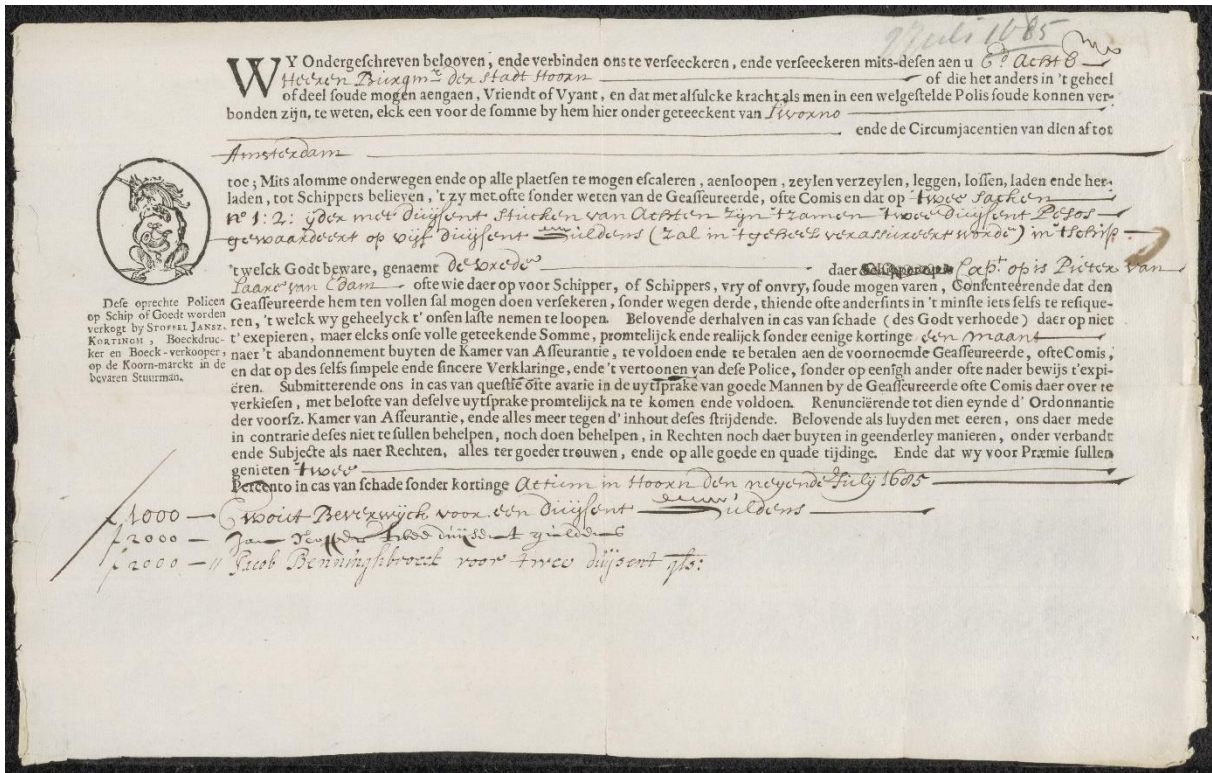 9 Juli 1685
WY Ondergeschreven belooven, ende verbinden ons te verseeckeren, ende verseeckeren mits-desen aen u Ed. Achtb
Heeren Burgmrs der stadt Hoorn of die het anders in 't geheel
of deel soude mogen aengaen, Vriendt of Vyant, en dat met alsulcke kracht als men in een welgestelde Polis soude konnen ver-
bonden zijn, te weten, elck een voor de somme by hem hier onder geteeckent van Livorno
ende de Circumjacentien van dien af tot
Amsterdam
toe; Mits alomme onderwegen ende op alle plaetsen te mogen escaleren, aenloopen, zeylen verzeylen, leggen, lossen, laden ende her-
laden, tot Schippers believen, 't zy met ofte sonder weten van de Geasseureerde, ofte Comis en dat op twee sacken
no 1: 2: yder met duysent stucken van Achten zyn t zamen twee duysent Pesos
gewaardeert op vijf duysent Guldens (zal in t geheel verassureert worde) in 't schip
't welck Godt beware, genaemt de vrede daer Capt op is Pieter van
Laare van Edam ofte wie daer op voor Schipper, of Schippers, vry of onvry, soude mogen varen, Consenteerende dat den
Geasseureerde hem ten vollen sal mogen doen versekeren, sonder wegen derde, thiende ofte andersints in 't minste iets selfs te resique-
ren, 't welck wy geheelyck t' onsen laste nemen te loopen. Belovende derhalven in cas van schade (des Godt verhoede) daer op niet
t' exepieren, maer elcks onse volle geteeckende Somme, promtelijck ende realijck sonder eenige kortinge een maant
naer 't abandonnement buyten de Kamer van Asseurantie, te voldoen ende te betalen aen de voornoemde Geasseureerde, ofte Comis,
en dat op des selfs simpele ende sincere Verklaringe, ende 't vertoonen van dese Police, sonder op eenigh ander ofte nader bewijs t'expi-
ëren. Submitterende ons in cas van questie ofte avarie in de uytsprake van goede Mannen by de Geasseureerde ofte Comis daer over te
verkiesen, met belofte van deselve uytsprake promtelijck na te komen ende voldoen. Renunciërende tot dien eynde d' Ordonnantie
der voorsz. Kamer van Asseurantie, ende alles meer tegen d' inhout deses strijdende. Belovende als luyden met eeren, ons daer mede
in contrarie deses niet te sullen behelpen, noch doen behelpen, in Rechten noch daer buyten in geenderley manieren, onder verbandt
ende Subjecte als naer Rechten, alles ter goeder trouwen, ende op alle goede en quade tijdinge. Ende dat wy voor Præmie sullen
genieten twee
Percento in cas van schade sonder kortinge Actum in Hoorn den negende July 1685
Dese oprechte Policen
op Schip of Goedt worden
verkogt by STOFFEL JANSZ.
KORTINGH, Boeckdruc-
ker en Boeck-verkooper,
op de Koorn-marckt in de
bevaren Stuurman.
ƒ 1000 — Beverwyck voor een duysent Guldens
ƒ 2000 — Jan twee duijsent guldens
ƒ 2000 — Jacob Benninghbroeck voor twee duijsent gls: